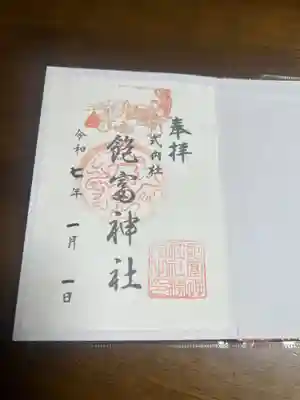 奉拝
式内社
飽富神社
令和七年
一月
一日